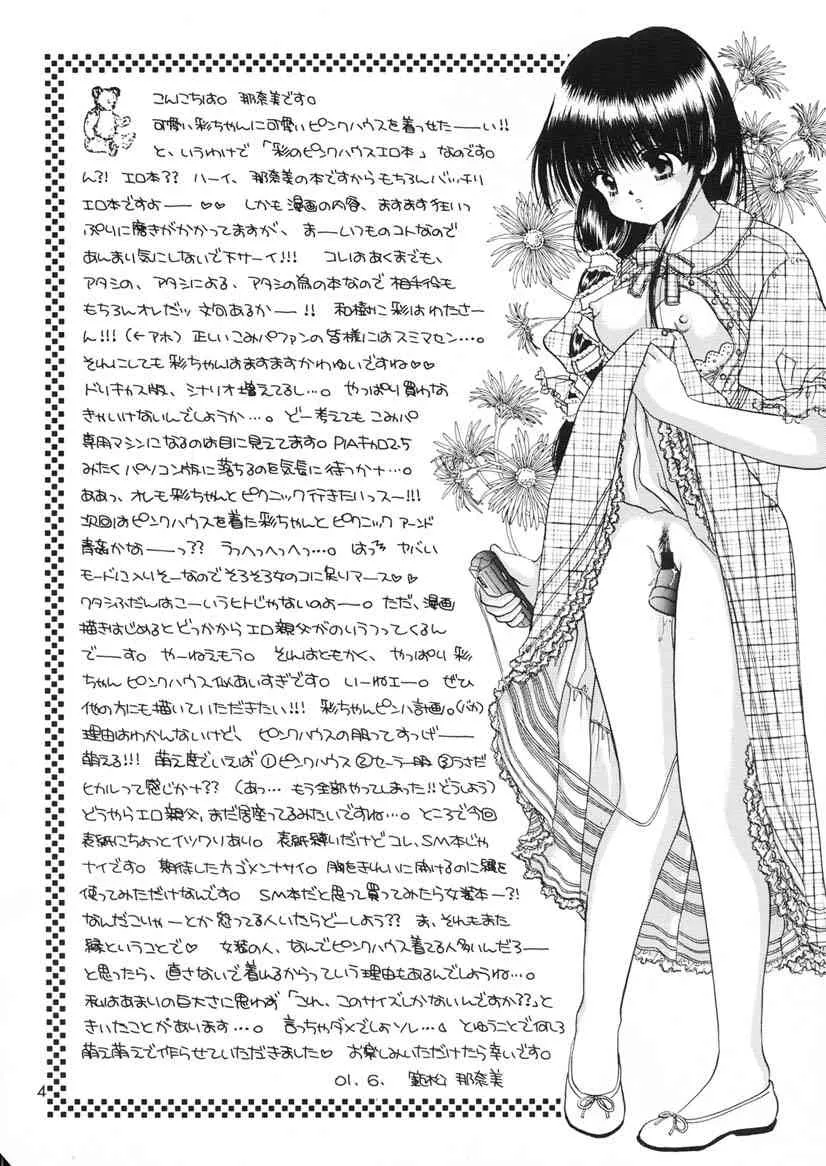 こんにちは。那奈美です。
可愛い彩ちゃんに可愛いピンクハウスを着せたーい!!
と、いうわけで「彩のピンクハウスエロ本」なのです。
ん?! エロ本?? ハーイ、那奈美の本ですからもちろんバッチリ
エロ本ですよー♡♡ しかも漫画の内容、ますます狂いっ
ぷりに磨きがかかってますが、まーいつものコトなので
あんまい気にしないで下サーイ!!! コレはあくまでも、
アタシの、アタシによる、アタシの為の本なので相手役も
もちろんオレだッ文句あるかー!! 和樹に彩はわたさー
ん!!!(←アホ) 正しいこみパファンの皆様にはスミマセン…。
それにしても彩ちゃんはますますかわゆいですね♡♡
ドリキャス版、シナリオ増えてるし…。やっぱり買わな
きゃいけないんでしょうか…。どー考えてもこみパ
専用マシンになるのは目に見えてます。PIAキャロ2.5
みたくパソコン版に落ちるのを気長に待つかナ…。
ああっ、オレも彩ちゃんとピクニック行きたいっスー!!!
次回はピンクハウスを着た彩ちゃんとピクニックアーンド
青姦かなーっ?? うっへっへっへっ…。はっ ヤバい
モードに入いそーなのでそろそろ女のコに戻りマース♡♡
ワタシふだんはこーいうヒトじゃないのよー。ただ、漫画
描きはじめるとどっかからエロ親父がのりうつってくるん
でーす。やーねえもう。それはともかく、やっぱり彩
ちゃんピンクハウス似あいすぎです。いーねエー。ぜひ
他の方にも描いていただきたい!!! 彩ちゃんピンハ計画。(バカ)
理由はわかんないけど、ピンクハウスの服ってすっげー
萌える!!! 萌え度でいえば①ピンクハウス②セーラー服③うさだ
ヒカルって感じかナ?? (あっ…もう全部やってしまった!!どうしよう)
どうやらエロ親父、まだ居座ってるみたいですね…。ところで今回
表紙にちょっとイツワリあり。表紙縛いだけどコレ、SM本じゃ
ナイです。期待した方ゴメンナサイ。胸をきれいに開けるのに縄を
使ってみただけなんです。SM本だと思って買ってみたら女装本ー?!
なんだこりゃーとか怒ってる人いたらどーしよう?? ま、それもまた
縁ということで♡ 女装の人、なんでピンクハウス着てる人多いんだろー
と思ったら、直さないで着れるからっていう理由もあるんでしょうね…。
私はあまりの巨大さに思わず「これ、このサイズしかないんですか??」と
きいたことがあります…。言っちゃダメでしょソレ… とゆうことで何しろ
萌え萌えで作らせていただきました♡ お楽しみいただけたら幸いです。
01. 6. 那奈美
4